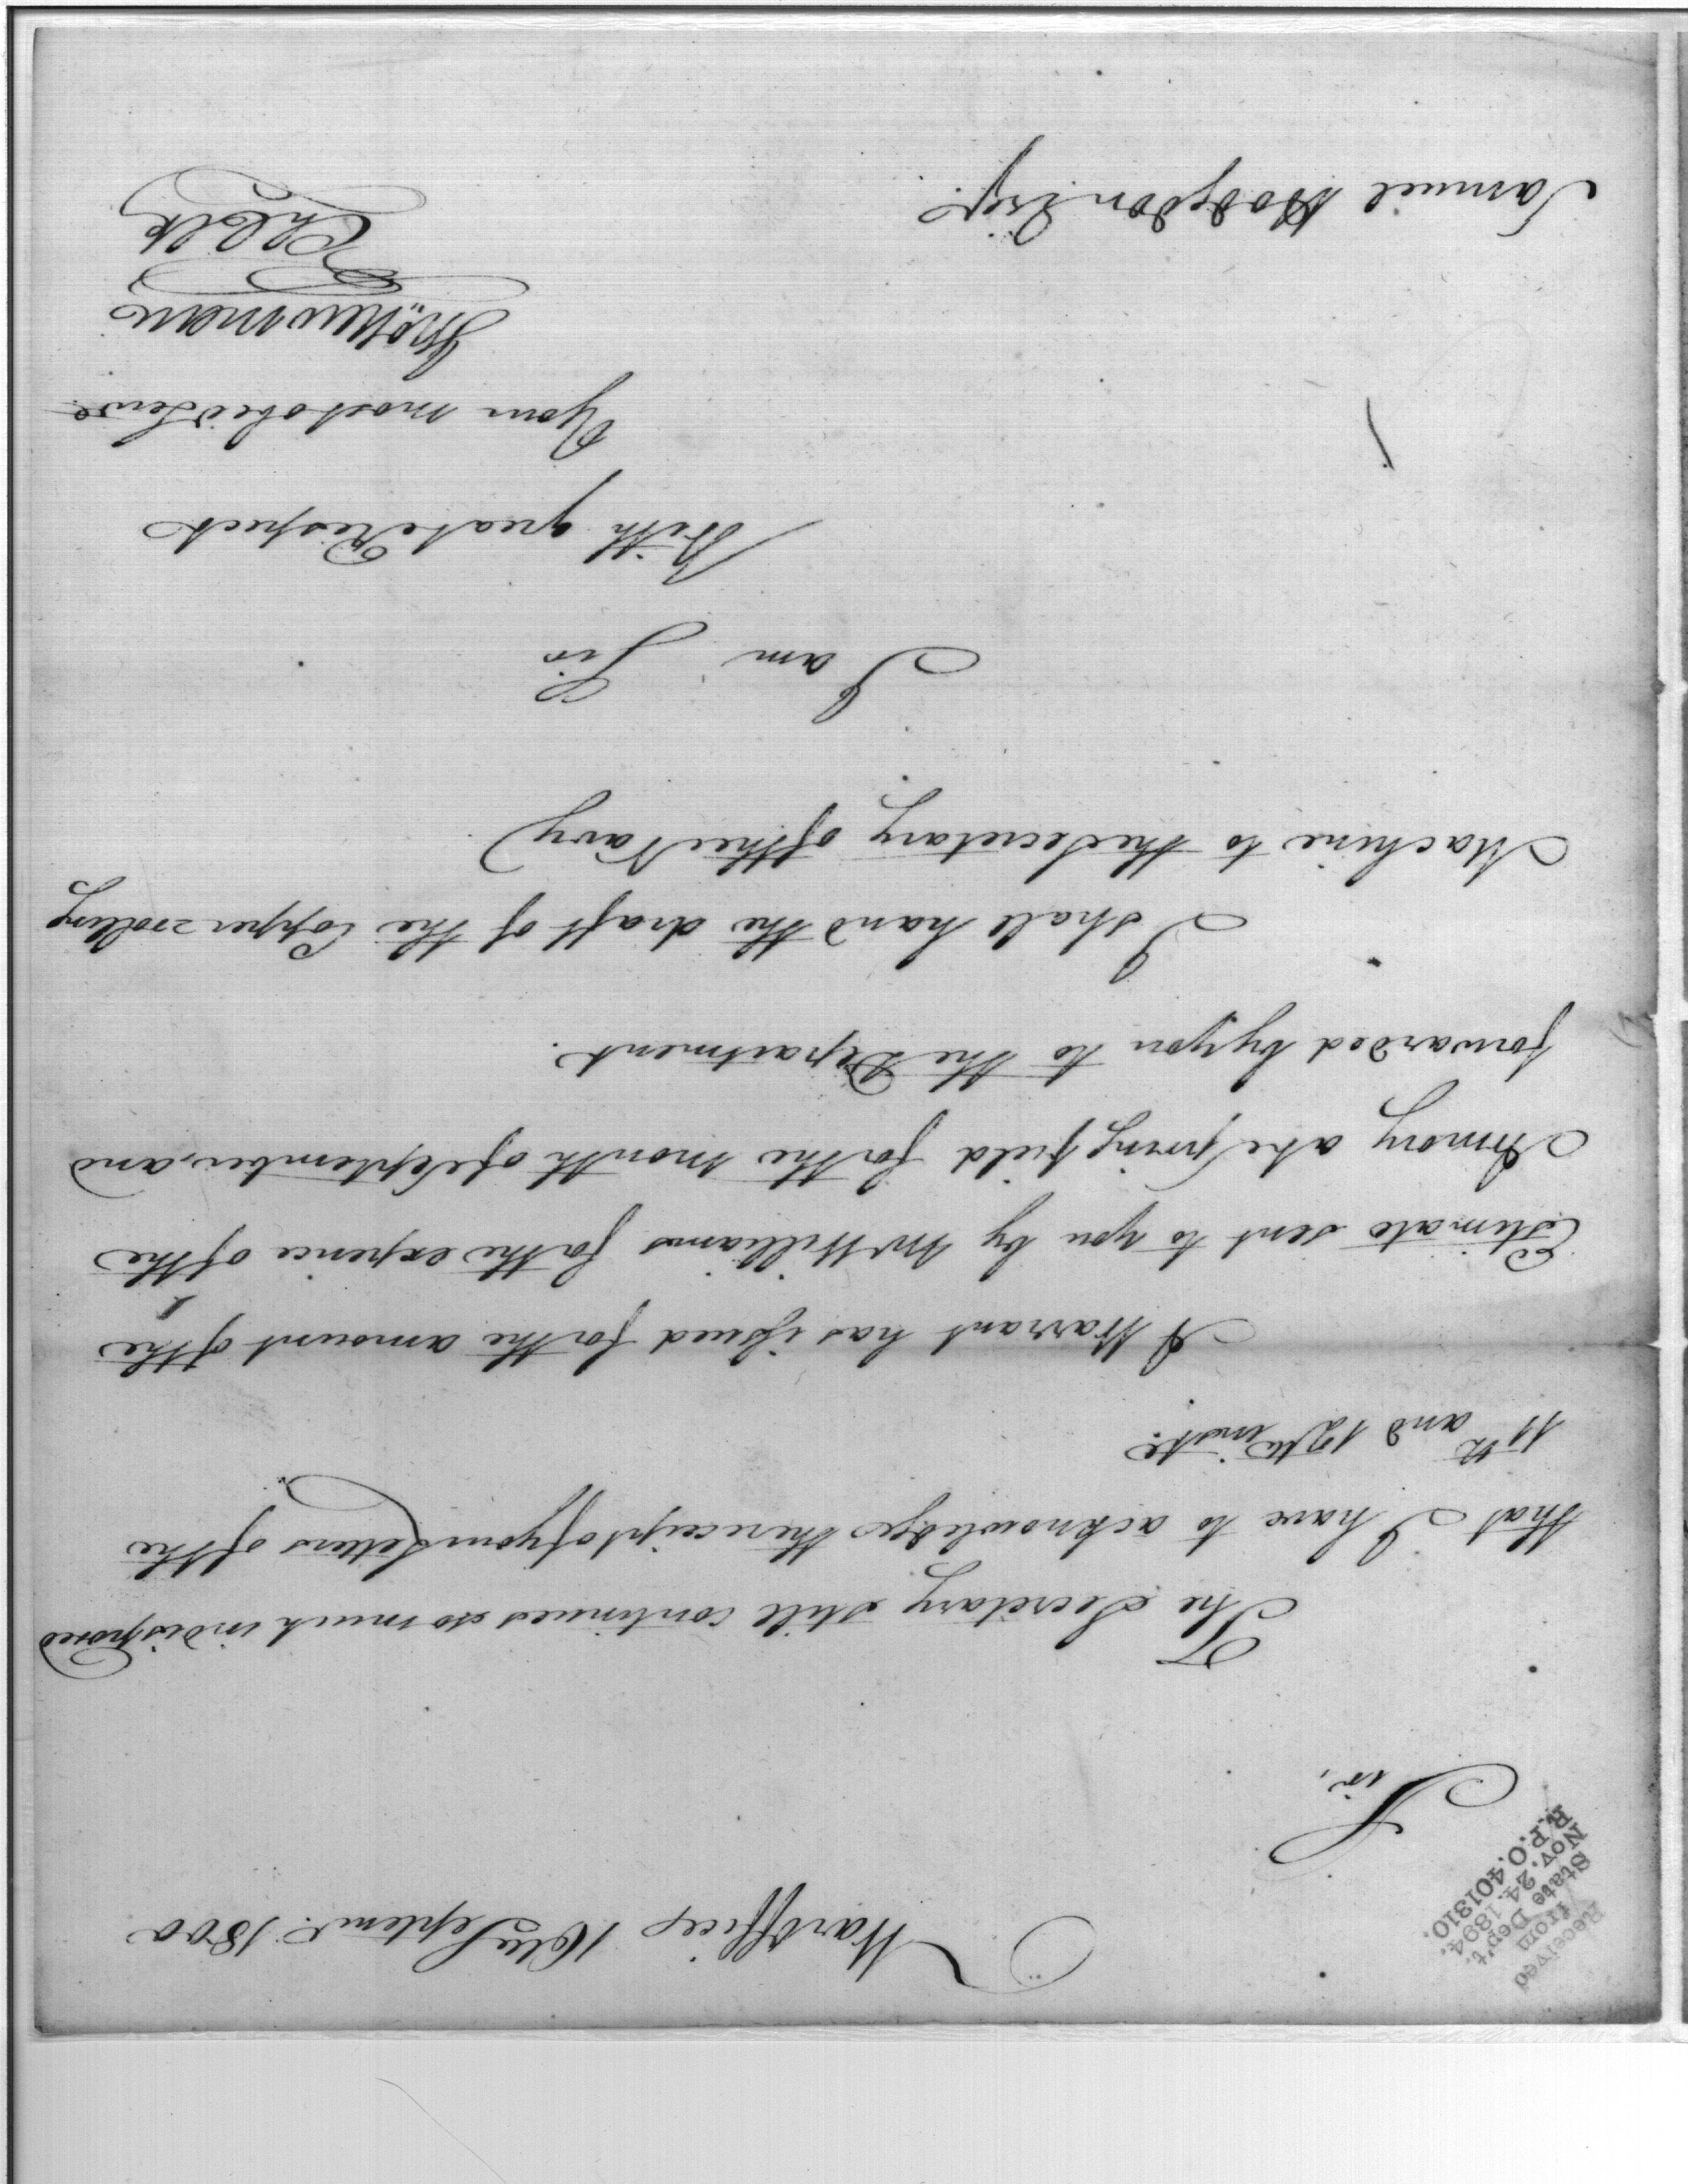 Received
from
State Dep't.
Nov. 24. 1894.
R.P.O. 401310.
War Office 16th Septemr. 1800
Sir,
The Secretary still continues so much indisposed
that I have to acknowledge the receipt of your Letters of the
11th and 12th inst.
A Warrant has issued for the amount of the
Estimate sent to you by Mr Williams for the expence of the
Armory at Springfield for the month of September, and
forwarded by you to the Department.
I shall hand the draft of the Copper rolling
Machine to the Secretary of the Navy
I am Sir
With great Respect
Your most obed Serv
Jno. Newman
Ch Clk
Samuel Hodgdon Esqr.